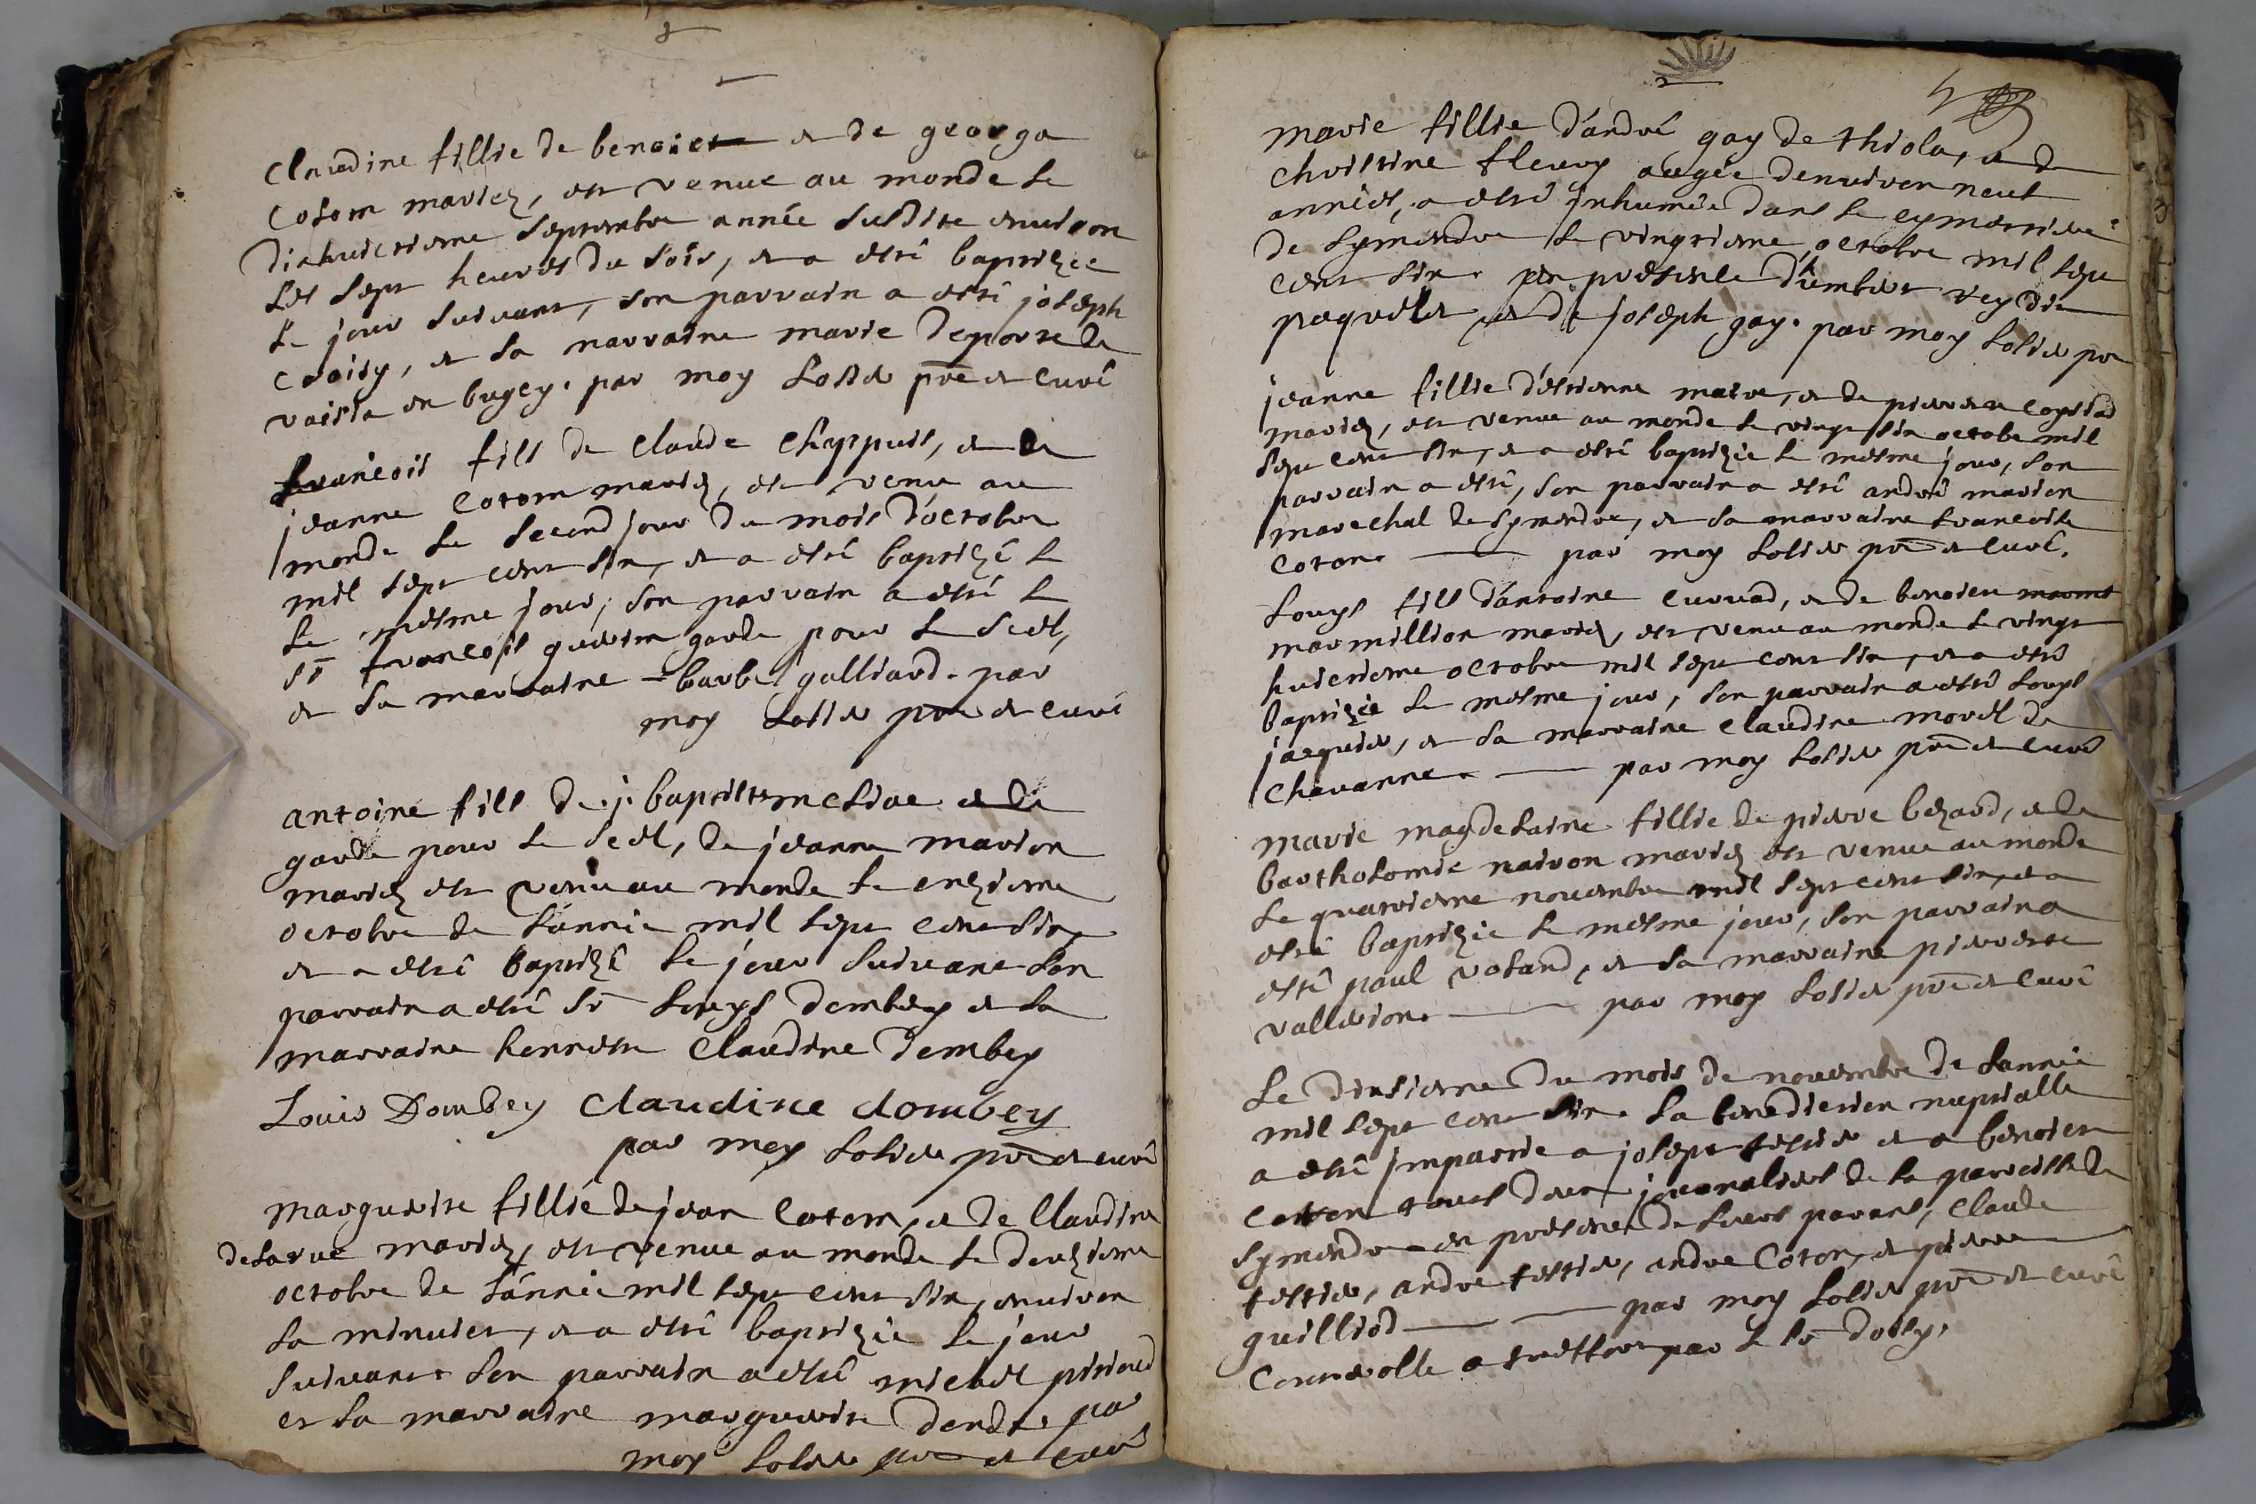 Claudine fillie de benoict et de george
Cotom mariez, est venue au monde le
dixhuictieme septembre année susdite environ
les sept heures du soir, et a esté baptizée
le jour suivant, son parrain a esté joseph
croisy, et sa marraine marie deporse de
en bugey. par moy Solier pre et curé
francois fils de claude Chappuis, et de
jeanne Cotom mariez, est venu au
monde le second jour du mois d'octobre
mil sept cent six, et a esté baptizé le
le mesme jour, son parrain a esté le
sr francois guerin garde pour le seel,
et sa marraine barbe galliard. par
moy Solier pre et curé
antoine fils de j. baptiste et de
garde pour le seel, de jeanne marion
mariez est venu au monde le onzieme
octobre de l'année mil sept cent six,
et a esté baptizé le jour suivant son
parrain a esté sr Louys dombey et sa
marraine honneste Claudine dombey
Louis Dombey Claudine dombey
par moy Solier pre et curé
marguerite fillie de jean Cotom, et de Claudine
delarue mariez, est venue au monde le douzieme
octobre de l'année mil sept cent six, environ
la minuict, et a esté baptizée le jour
suivant son parrain a esté michel
et sa marraine marguerite par
moy Solier pre et curé
marie fillie d'andré gay de thiola, et de
christine fleury aagée denviron neuf
années, a esté inhumée dans le cymettiere
de symandre le vingtieme octobre mil sept
cent six. en presence d'umbert
paquelet et de joseph gay. par moy Solier pre
jeanne fillie d'estienne maire, et de pierrette
mariez, est venue au monde le vingt six octobe mil
sept cent six, et a esté baptizée le mesme jour, son
parrain a esté, son parrain a esté andré marion
marechal de symandre, et sa marraine francoise
Coton. par moy Solier pre et curé.
Louys fils d'antoine curvad, et de benoiste
marmillion mariez, est venu au monde le vingt
huictieme octobre mil sept cent six, et a esté
baptizée le mesme jour, son parrain a esté Louys
jarquier, et sa marraine claudine morel de
Chavanne. par moy Solier pre et curé
marie magdelaine fillie de pierre bezard, et de
bartholomie naivon mariez est venue au monde
le quatrieme novembre mil sept cent six, et a
esté baptizée le mesme jour, son parrain a
esté paul voland, et sa marraine pierrette
vallerion. par moy Solier pre et curé
Le dixsieme du mois de novembre de l'année
mil sept cent six. la benediction nuptialle
a esté impartie a josept testier et a benoiste
Cotton tous deux journaliers de la parroisse de
Symandre en presence de leurs parans, Claude
testier, andre testier, andre Coton, et pierre
guilliod par moy Solier pre et curé
Conterolle a par le sr dorsy.